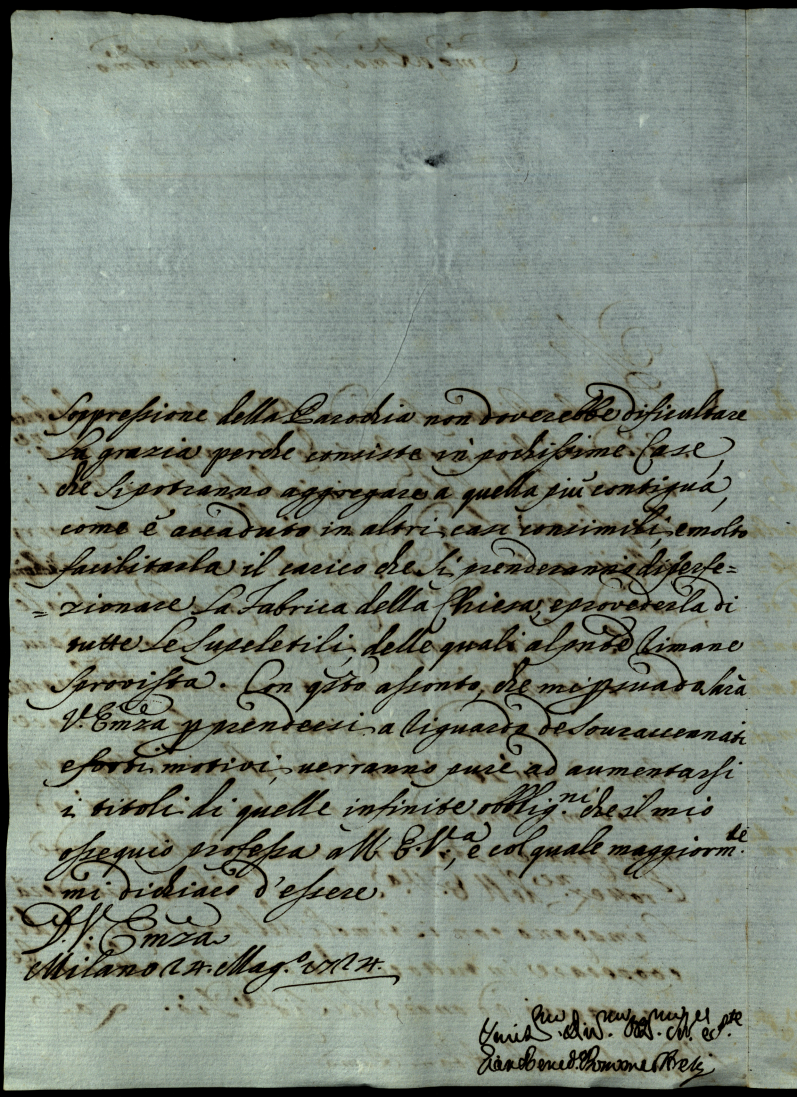 soppressione della Parochia non doverebbe dificultare
la grazia perche consiste in pochissime Case,
che si potranno aggregare a quella più contigua,
come è accaduto in altri casi consimili, e molto
facilitarla il carico che si prenderanno di perfe=
=zionare la Fabrica della Chiesa, e provederla di
tutte le supeletili, delle quali al pnte rimane
sprovista. Con qsto assonto, che mi psuado sarà
V. Emza p prendersi a riguardo de souraccennati
e forti motivi, verranno pure ad aumentarsi
i titoli di quelle infinite obblig.ni che il mio
ossequio professa all' E.V.a, e col quale maggiorm.te
mi dichiaro d'essere
D. V. Emza
Milano 24. Mag.o 1724.